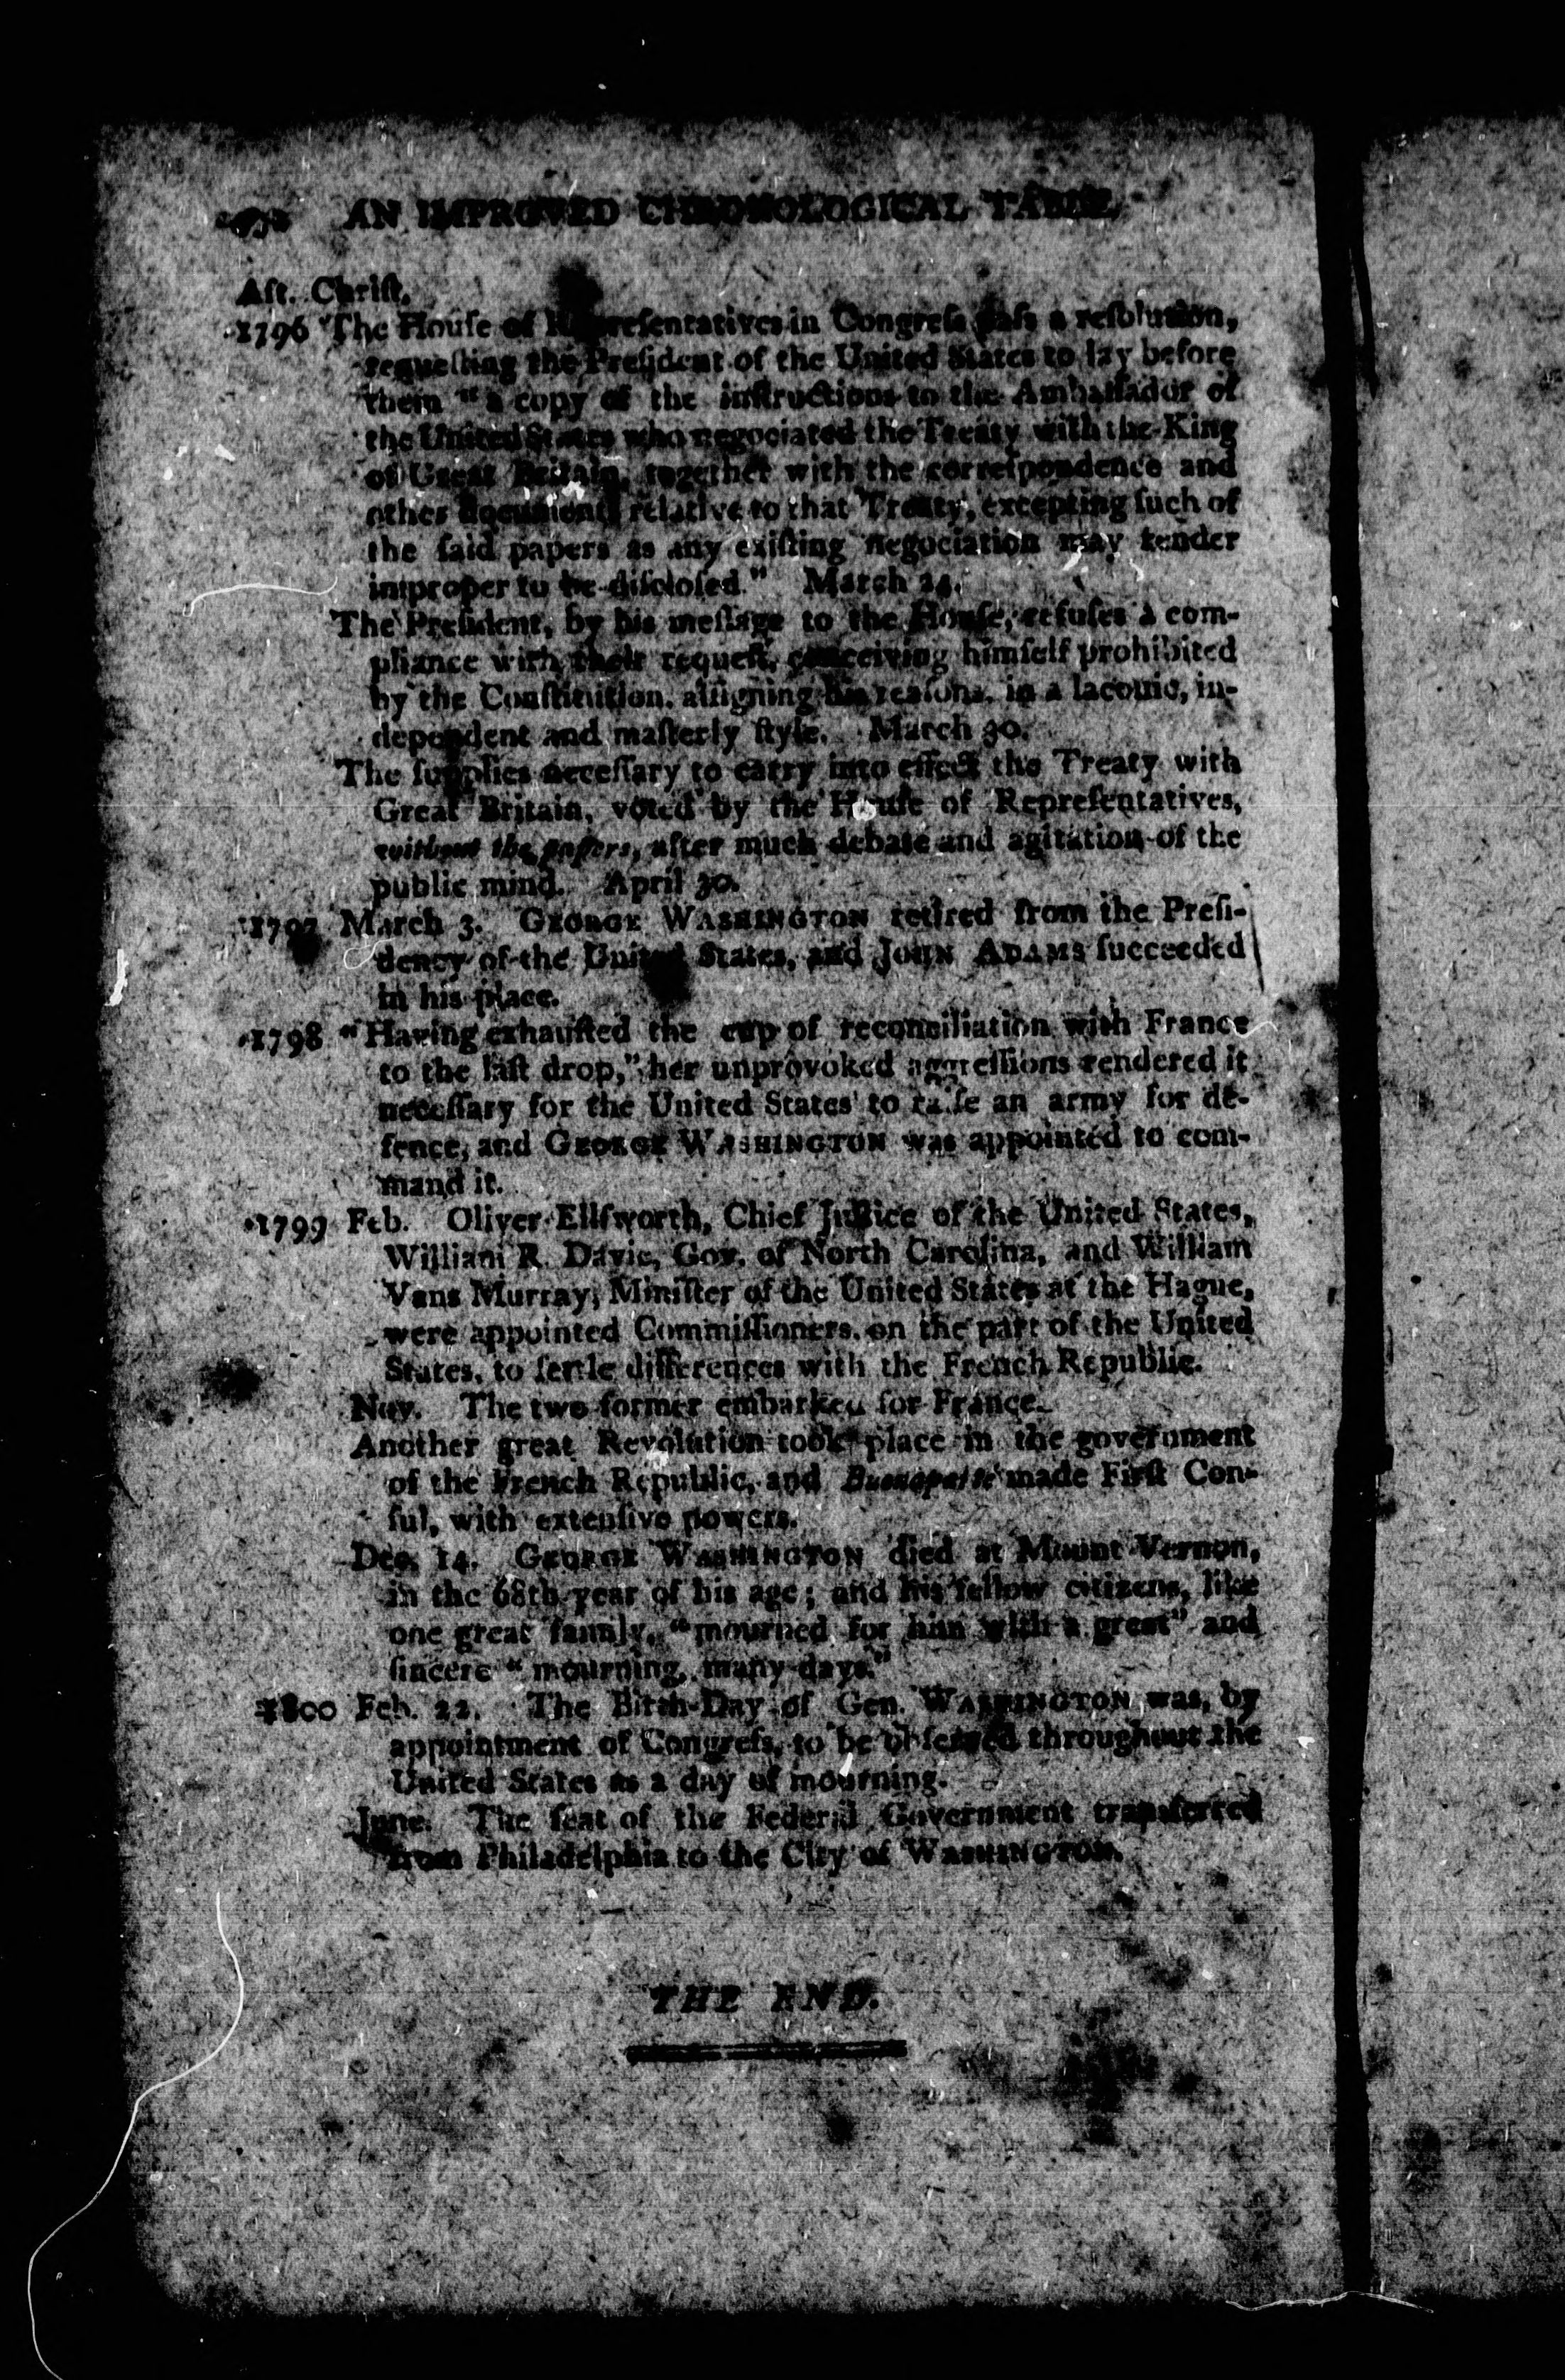 AN IMPROVED CHRONOLOGICAL TABLE.
Aft. Chriſt.
1796 The Houſe of Repreſentatives in Congreſs paſs a reſolution,
requeſting the Preſident of the United States to lay before
them "a copy of the inſtructions to the Ambaſſador of
the United States who negociated the Treaty with the King
of Great Britain, together with the correſpondence and
other documents relative to that Treaty, excepting ſuch of
the ſaid papers as any exiſting negociation may render
improper to be diſcloſed." March 24.
The Preſident, by his meſſage to the Houſe, refuſes a com-
pliance with their requeſt, conceiving himſelf prohibited
by the Conſtitution, aſſigning his reaſons, in a laconic, in-
dependent and maſterly ſtyle. March 30.
The ſupplies neceſſary to carry into effect the Treaty with
Great Britain, voted by the Houſe of Repreſentatives,
without the papers, after much debate and agitation of the
public mind. April 30.
1797 March 3. GEORGE WASHINGTON retired from the Preſi-
dency of the United States, and JOHN ADAMS ſucceeded
in his place.
1798 "Having exhauſted the cup of reconciliation with France
to the laſt drop," her unprovoked aggreſſions rendered it
neceſſary for the United States to raiſe an army for de-
fence, and GEORGE WASHINGTON was appointed to com-
mand it.
1799 Feb. Oliver Ellſworth, Chief Juſtice of the United States,
William R. Davie, Gov. of North Carolina, and William
Vans Murray, Miniſter of the United States at the Hague,
were appointed Commiſſioners, on the part of the United
States, to ſettle differences with the French Republic.
Nov. The two former embarked for France.
Another great Revolution took place in the government
of the French Republic, and Buonaparte made Firſt Con-
ſul, with extenſive powers.
Dec. 14. GEORGE WASHINGTON died at Mount Vernon,
in the 68th year of his age; and his fellow citizens, like
one great family, "mourned for him with a great" and
ſincere "mourning, many days."
1800 Feb. 22. The Birth-Day of Gen. WASHINGTON was, by
appointment of Congreſs, to be obſerved throughout the
United States as a day of mourning.
June. The ſeat of the Federal Government transferred
from Philadelphia to the City of WASHINGTON.
THE END.